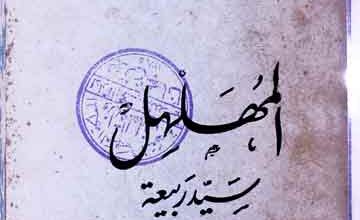 المُهَلْهِل
سَيِّد رَبيعَة